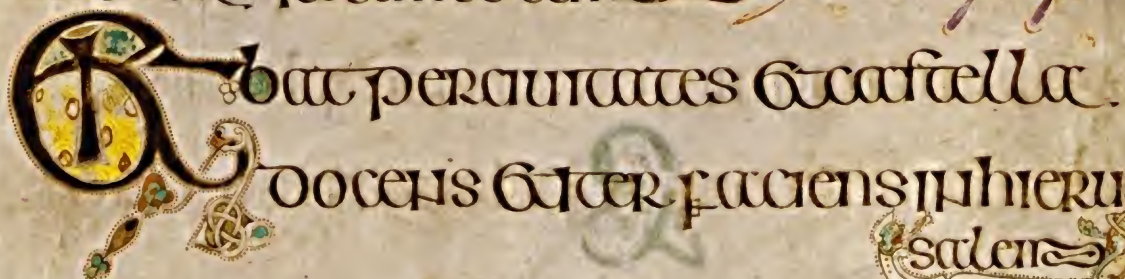 Et Ibat perciuitates et castella.
docens et iter faciens inhieru
salem